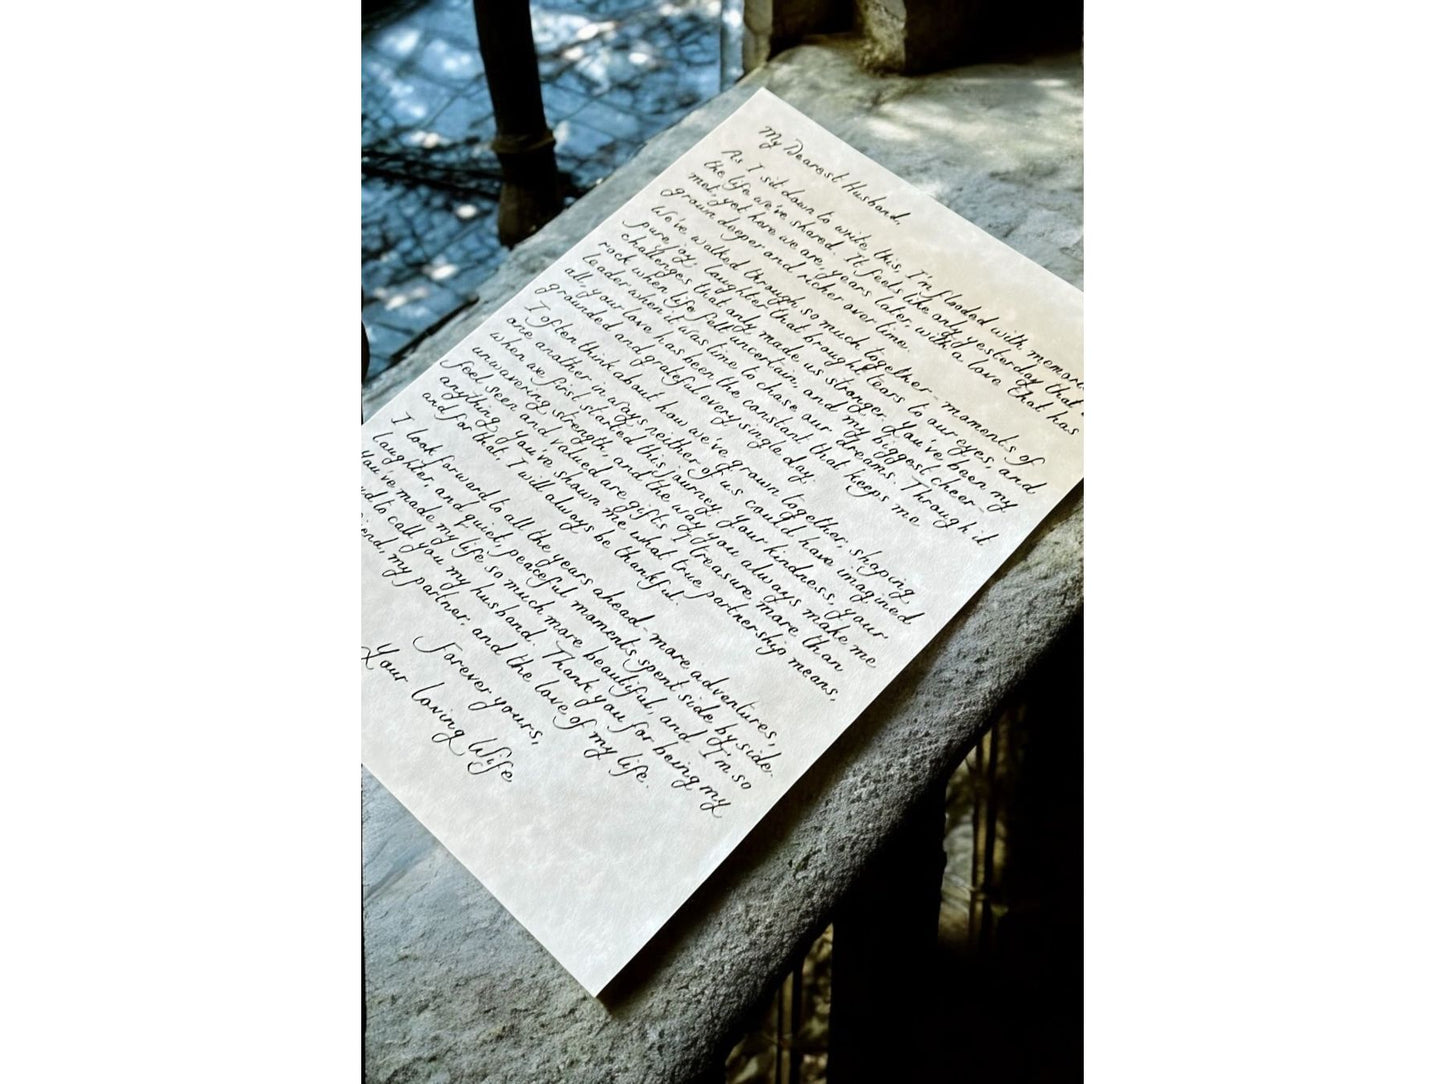 My Dearest Husband,
As I sit down to write this, I'm flooded with memori
the life we've shared. It feels like only yesterday that
met, yet here we are, years later, with a love that has
grown deeper and richer over time.
We've walked through so much together - moments of
pure joy, laughter that brought tears to our eyes, and
challenges that only made us stronger. You've been my
rock when life felt uncertain, and my biggest cheer-
leader when it was time to chase our dreams. Through it
all, your love has been the constant that keeps me
grounded and grateful every single day.
I often think about how we've grown together, shaping
one another in ways neither of us could have imagined
when we first started this journey. Your kindness, your
unwavering strength, and the way you always make me
feel seen and valued are gifts I treasure more than
anything. You've shown me what true partnership means,
and for that, I will always be thankful.
I look forward to all the years ahead - more adventures,
laughter, and quiet, peaceful moments spent side by side.
You've made my life so much more beautiful, and I'm so
ud to call you my husband. Thank you for being my
iend, my partner, and the love of my life.
Forever yours,
Your loving Wife